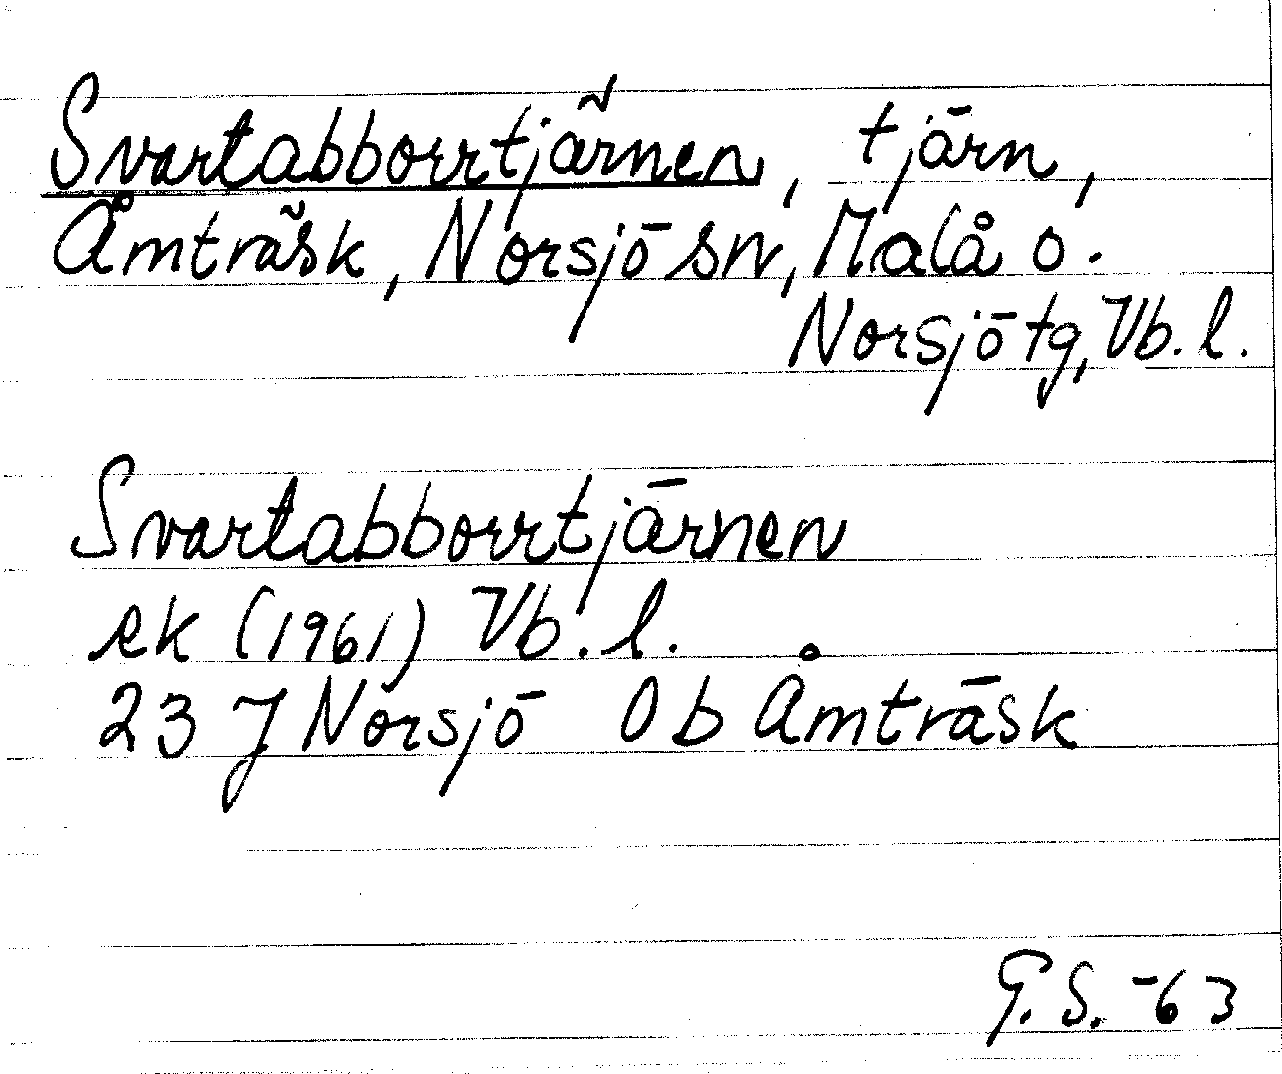 Svartabborrtjärnen, tjärn,
Åmträsk, Norsjö sn, Malå o.
Norsjö tg, Vb. l.
Svartabborrtjärnen
ek (1961) Vb. l.
23 J Norsjö 0 b Åmträsk
G. S. -63